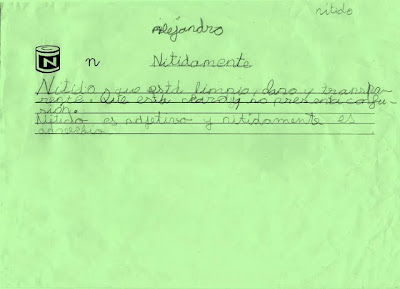 nítido
Alejandro
N n Nítidamente
Nítido, que está limpio, claro y transpa-
rente. Que está claro, no presenta confu-
sión.
Nítido es adjetivo y nítidamente es
adverbio.